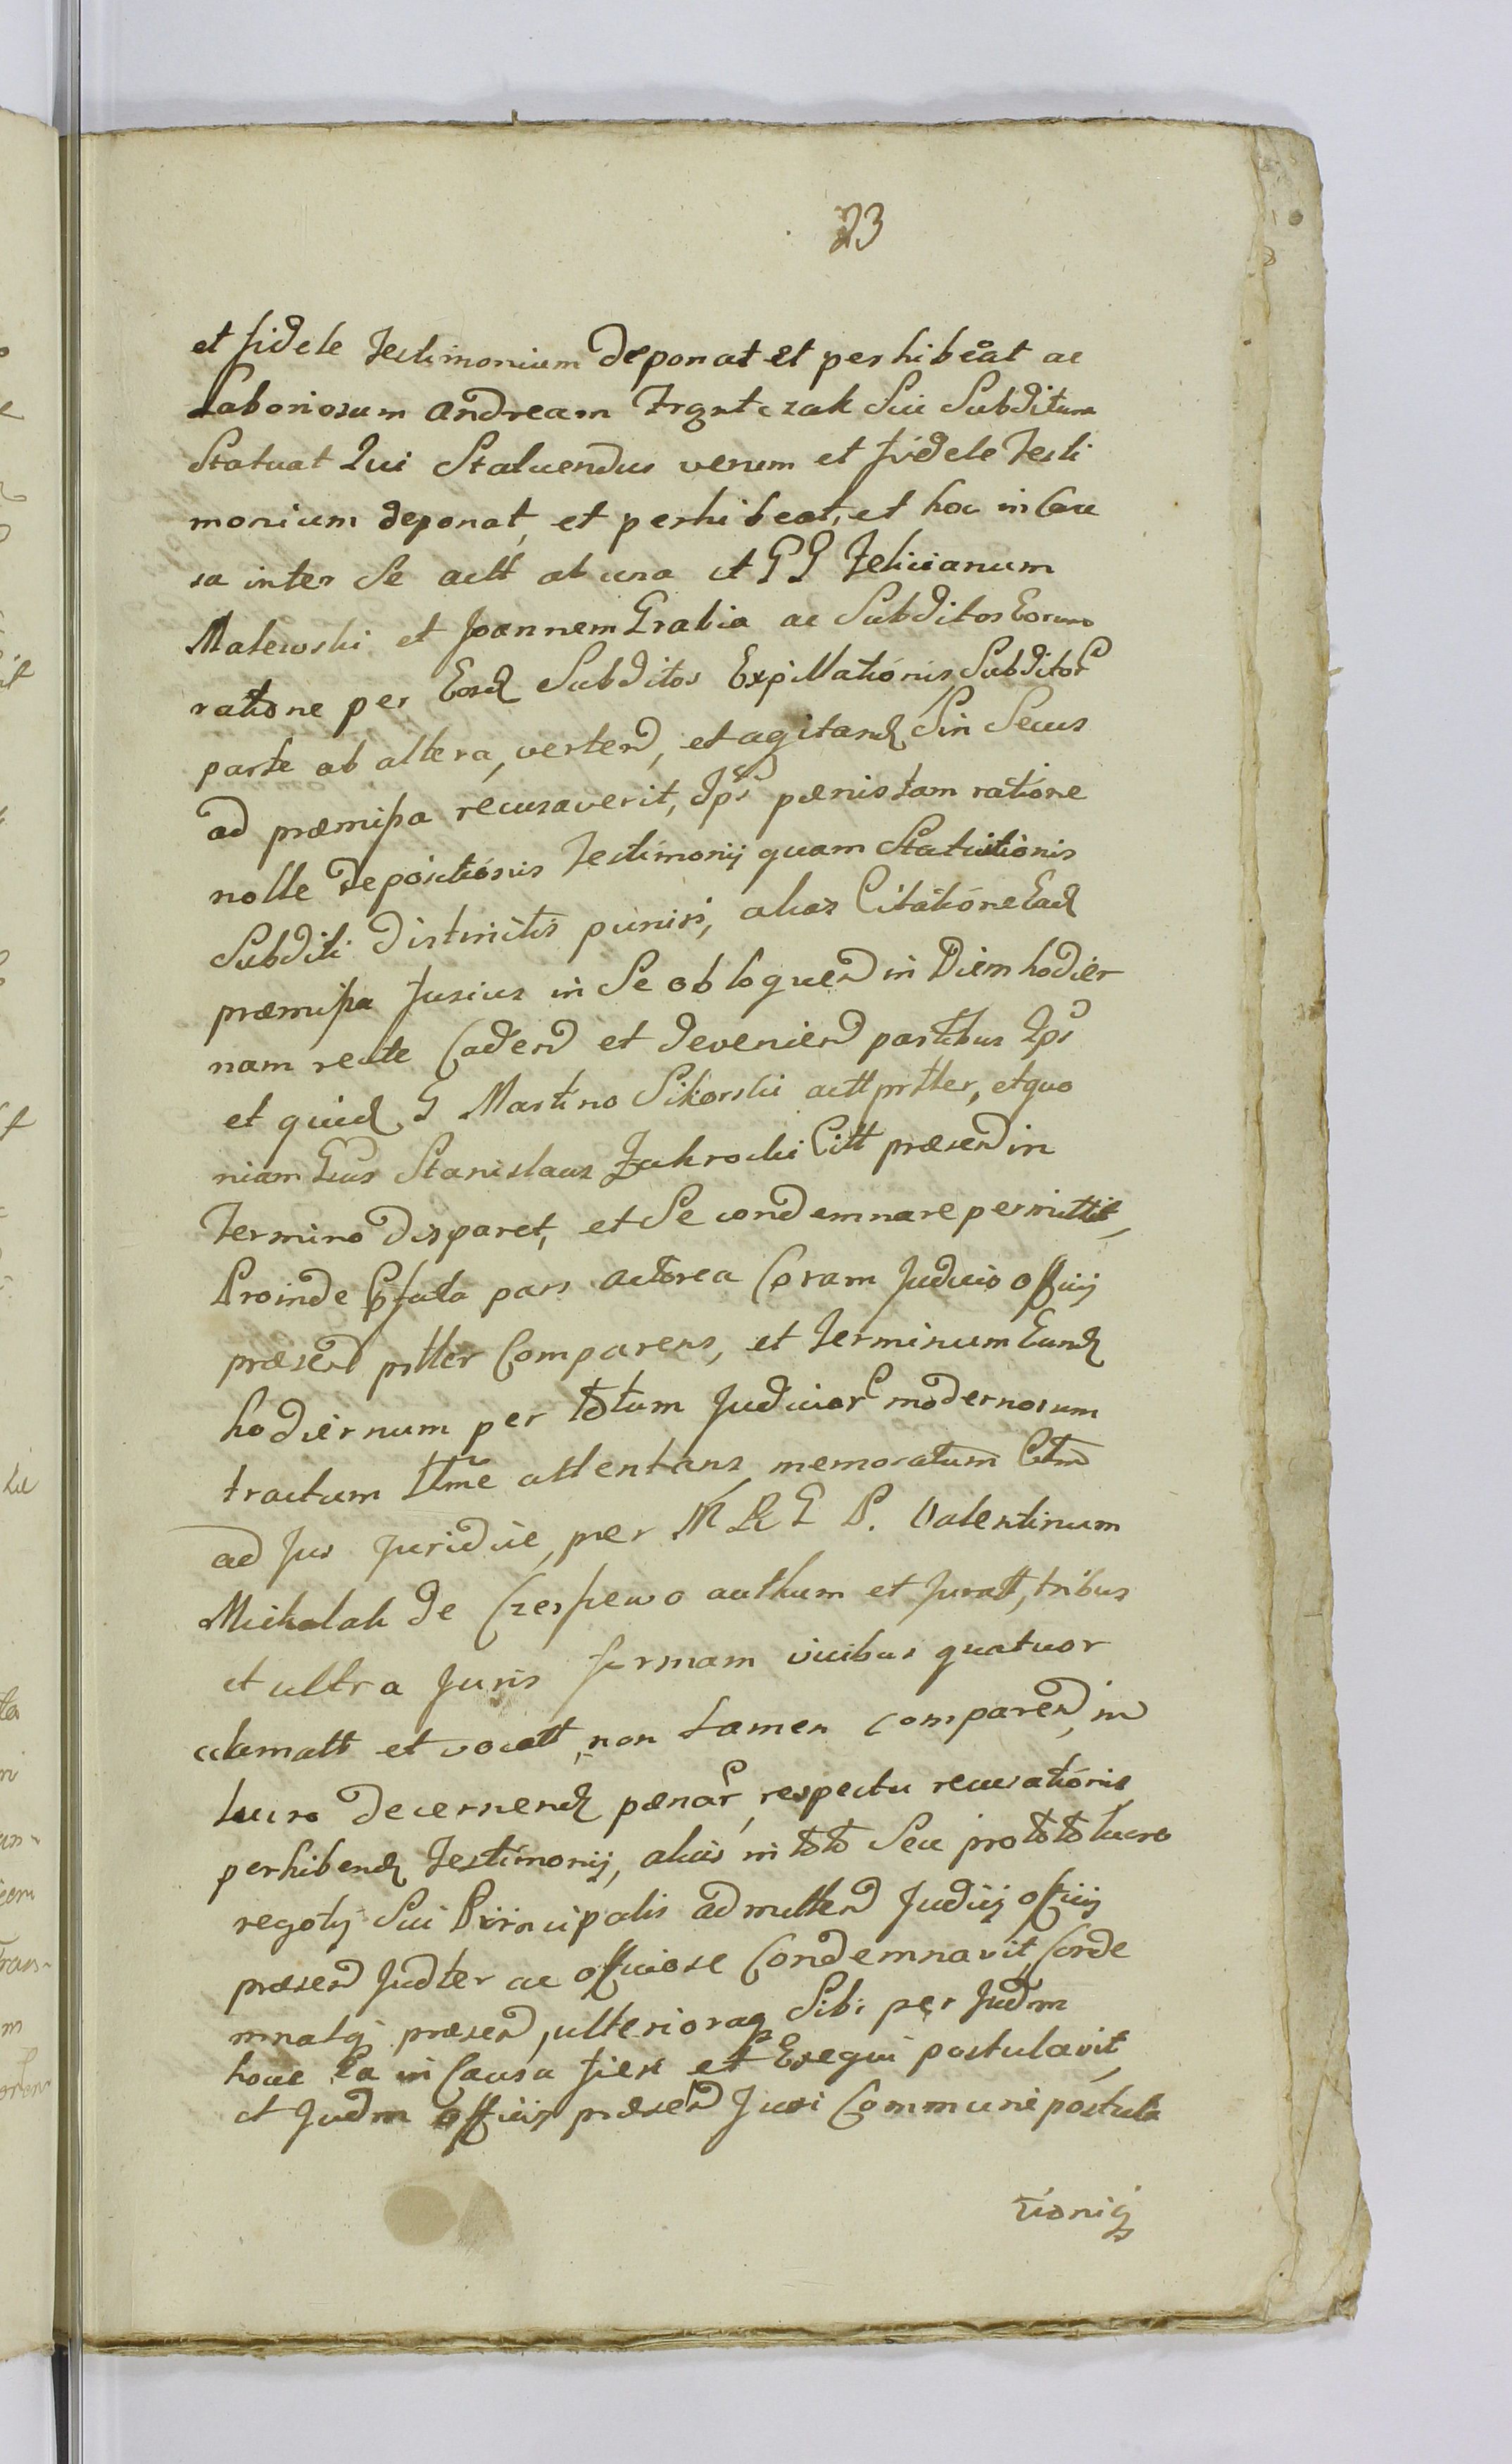 23
et fidele Testimonium deponat et perhibeat ac
Laboriosum Andream Frqntczak Sui Subditum
Statuat Qui Statuendus verum et fidele Testi
monium deponat, et perhibeat, et hoc in Cau
sa inter Se actt ab una et GG Felicianum
Malewski et Joannem Grabia ac Subditos Eorum
ratione per Eosd Subditos Expillationis Subditor
parte ab altera, verten, et agitand Sin Secus
ad præmissa recusaverit, Ips pænis tam ratione
nolle depositionis Testimonij quam Statuitionis
Subditi distinctis puniri, alias Citatione Ead
præmissa fusius in Se obloquen in Diem hodier
nam recte Caden et devenien partibus Ips
et quid G Martino Sikorski actt prtter, et quo
niam Gus Stanislaus Zakrocki Citt præsen in
Termino disparet, et Se condemnare permittit,
Proinde Pfata pars actorea Coram Judicio officij
præsen prtter Comparens, et Terminum Eund
hodiernum per totum Judicior modernorum
tractum ttme attentans, memoratum Cittm
ad Jus Juridice, per M R G P. Valentinum
Mickalak de Czerssewo autthum et Juratt, tribus
et ultra Juris formam vicibus quatuor
cclamatt et vocatt, non tamen comparen, in
lucro decernend pænar, respectu recusationis
perhibend Testimonij, alias in toto Seu pro toto lucro
negotij Sui Principalis admitten Judicij officij
præsen Judter ac officiose Condemnavit, Conde
mnatq præsen, ulterioraq Sibi per Judm
hocce Ea in Causa fieri et Exequi postulavit,
et Judm officij præsen Juri Communi postula
tioniq